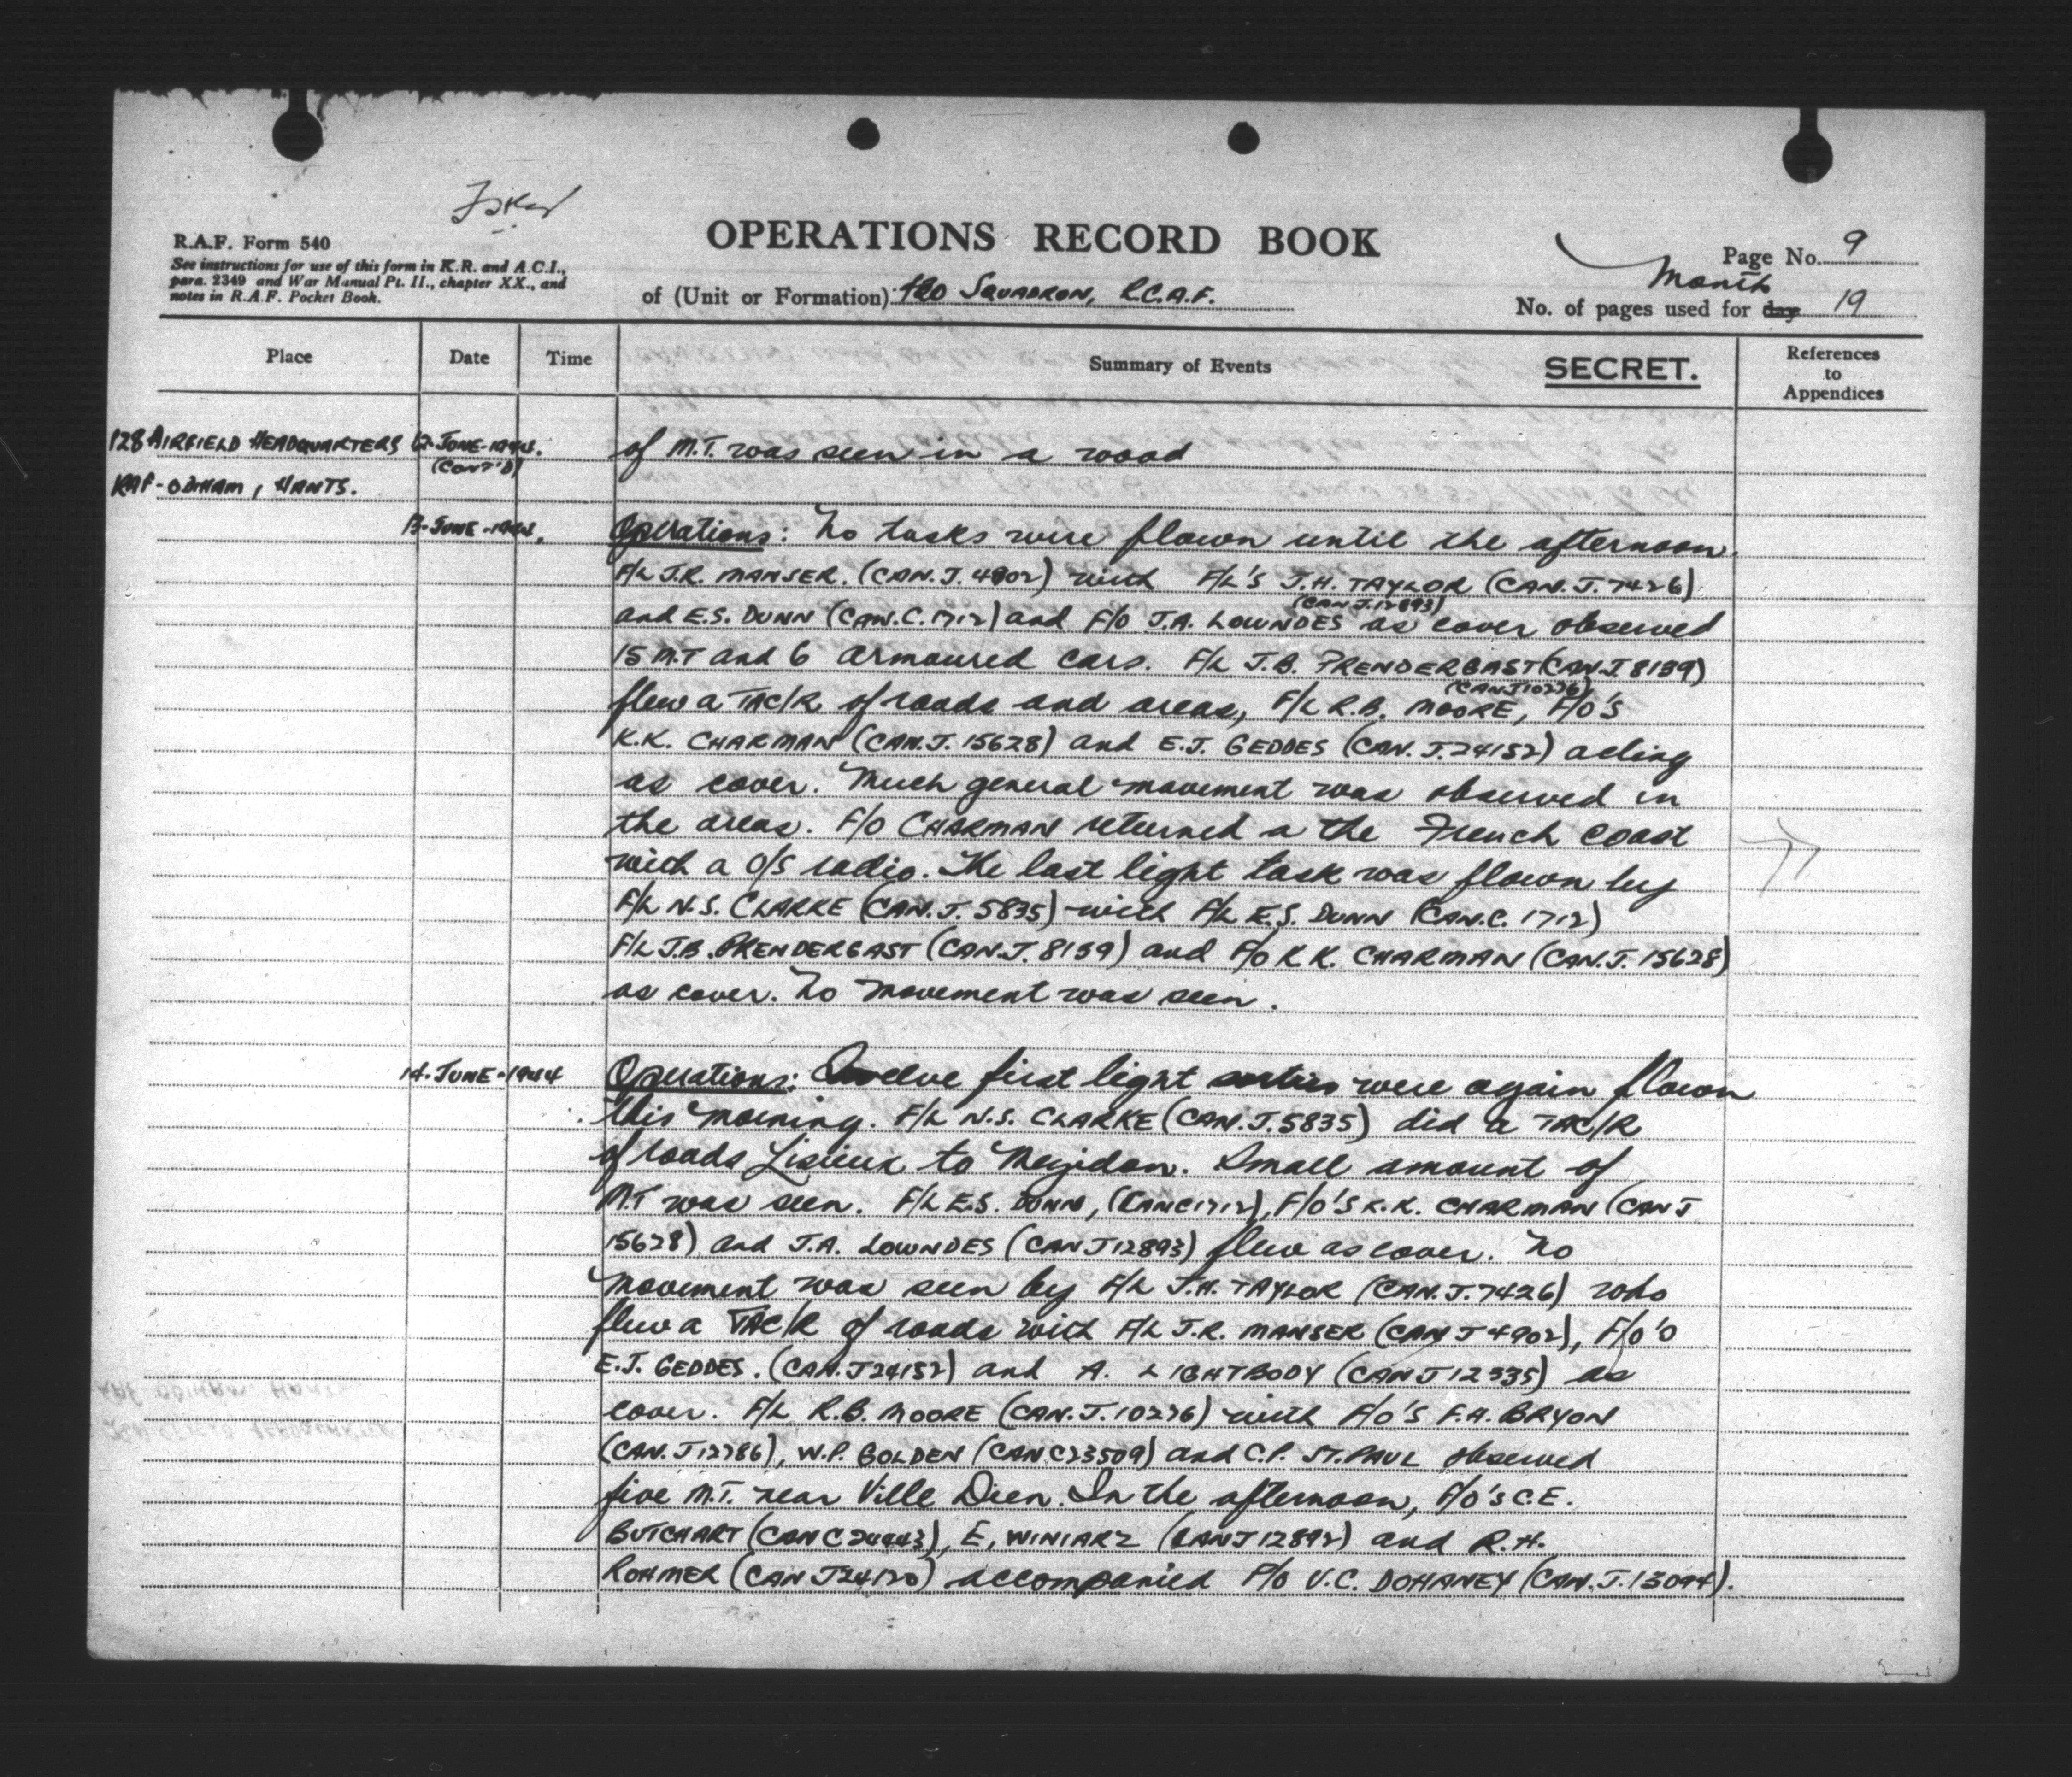 OPERATIONS RECORD BOOK
R.A.F. Form 540
See instructions for use of this form in K.R. and A.C.I.,
para. 2349 and War Manual Pt. II., chapter XX., and
notes in R.A.F. Pocket Book.
of (Unit or Formation) 430 SQUADRON, R.C.A.F.
Page No. 9
Month
No. of pages used for day 19
Place Date Time Summary of Events SECRET. References to Appendices
128 AIRFIELD HEADQUARTERS 12-JUNE-1944. of M.T. was seen in a wood
(CONT'D)
RAF-ODIHAM, HANTS.
13-JUNE-1944. Operations: No tasks were flown until the afternoon.
F/L J.R. MANSER. (CAN.J.4902) with F/L'S J.H. TAYLOR (CAN.J.7426)
(CAN J.12893)
and E.S. DUNN (CAN.C.1712) and F/O J.A. LOWNDES as cover observed
15 M.T and 6 armoured cars. F/L J.B. PRENDERGAST (CAN.J.8139)
(CAN J10276)
flew a TAC/R of roads and areas, F/L R.B. MOORE, F/O'S
K.K. CHARMAN (CAN.J.15628) and E.J. GEDDES (CAN.J.24152) acting
as cover. Much general movement was observed in
the areas. F/O CHARMAN returned a the French coast
with a O/S radio. The last light task was flown by
F/L N.S. CLARKE (CAN.J.5835) with F/L E.S. DUNN (CAN.C.1712)
F/L J.B. PRENDERGAST (CAN.J.8139) and F/O K.K. CHARMAN (CAN.J.15628)
as cover. No movement was seen.
14-JUNE-1944 Operations: Twelve first light sorties were again flown
this morning. F/L N.S. CLARKE (CAN.J.5835) did a TAC/R
of roads Lisieux to Mezidon. Small amount of
M.T was seen. F/L E.S. DUNN, (CANC1712), F/O'S K.K. CHARMAN (CAN J
15628) and J.A. LOWNDES (CAN J12893) flew as cover. No
movement was seen by F/L J.H. TAYLOR (CAN.J.7426) who
flew a TAC/R of roads with F/L J.R. MANSER (CAN J4902), F/O'S
E.J. GEDDES. (CAN.J24152) and A. LIGHTBODY (CAN J12335) as
cover. F/L R.B. MOORE (CAN.J.10276) with F/O'S F.H. BRYON
(CAN.J12786), W.P. GOLDEN (CAN.C23509) and C.P. ST.PAUL observed
five M.T. near Ville Dien. In the afternoon, F/O'S C.E.
BUTCHART (CAN C24443), E. WINIARZ (CANJ12892) and R.H.
ROHMER (CAN J24120) accompanied F/O V.C. DOHANEY (CAN.J.13094).